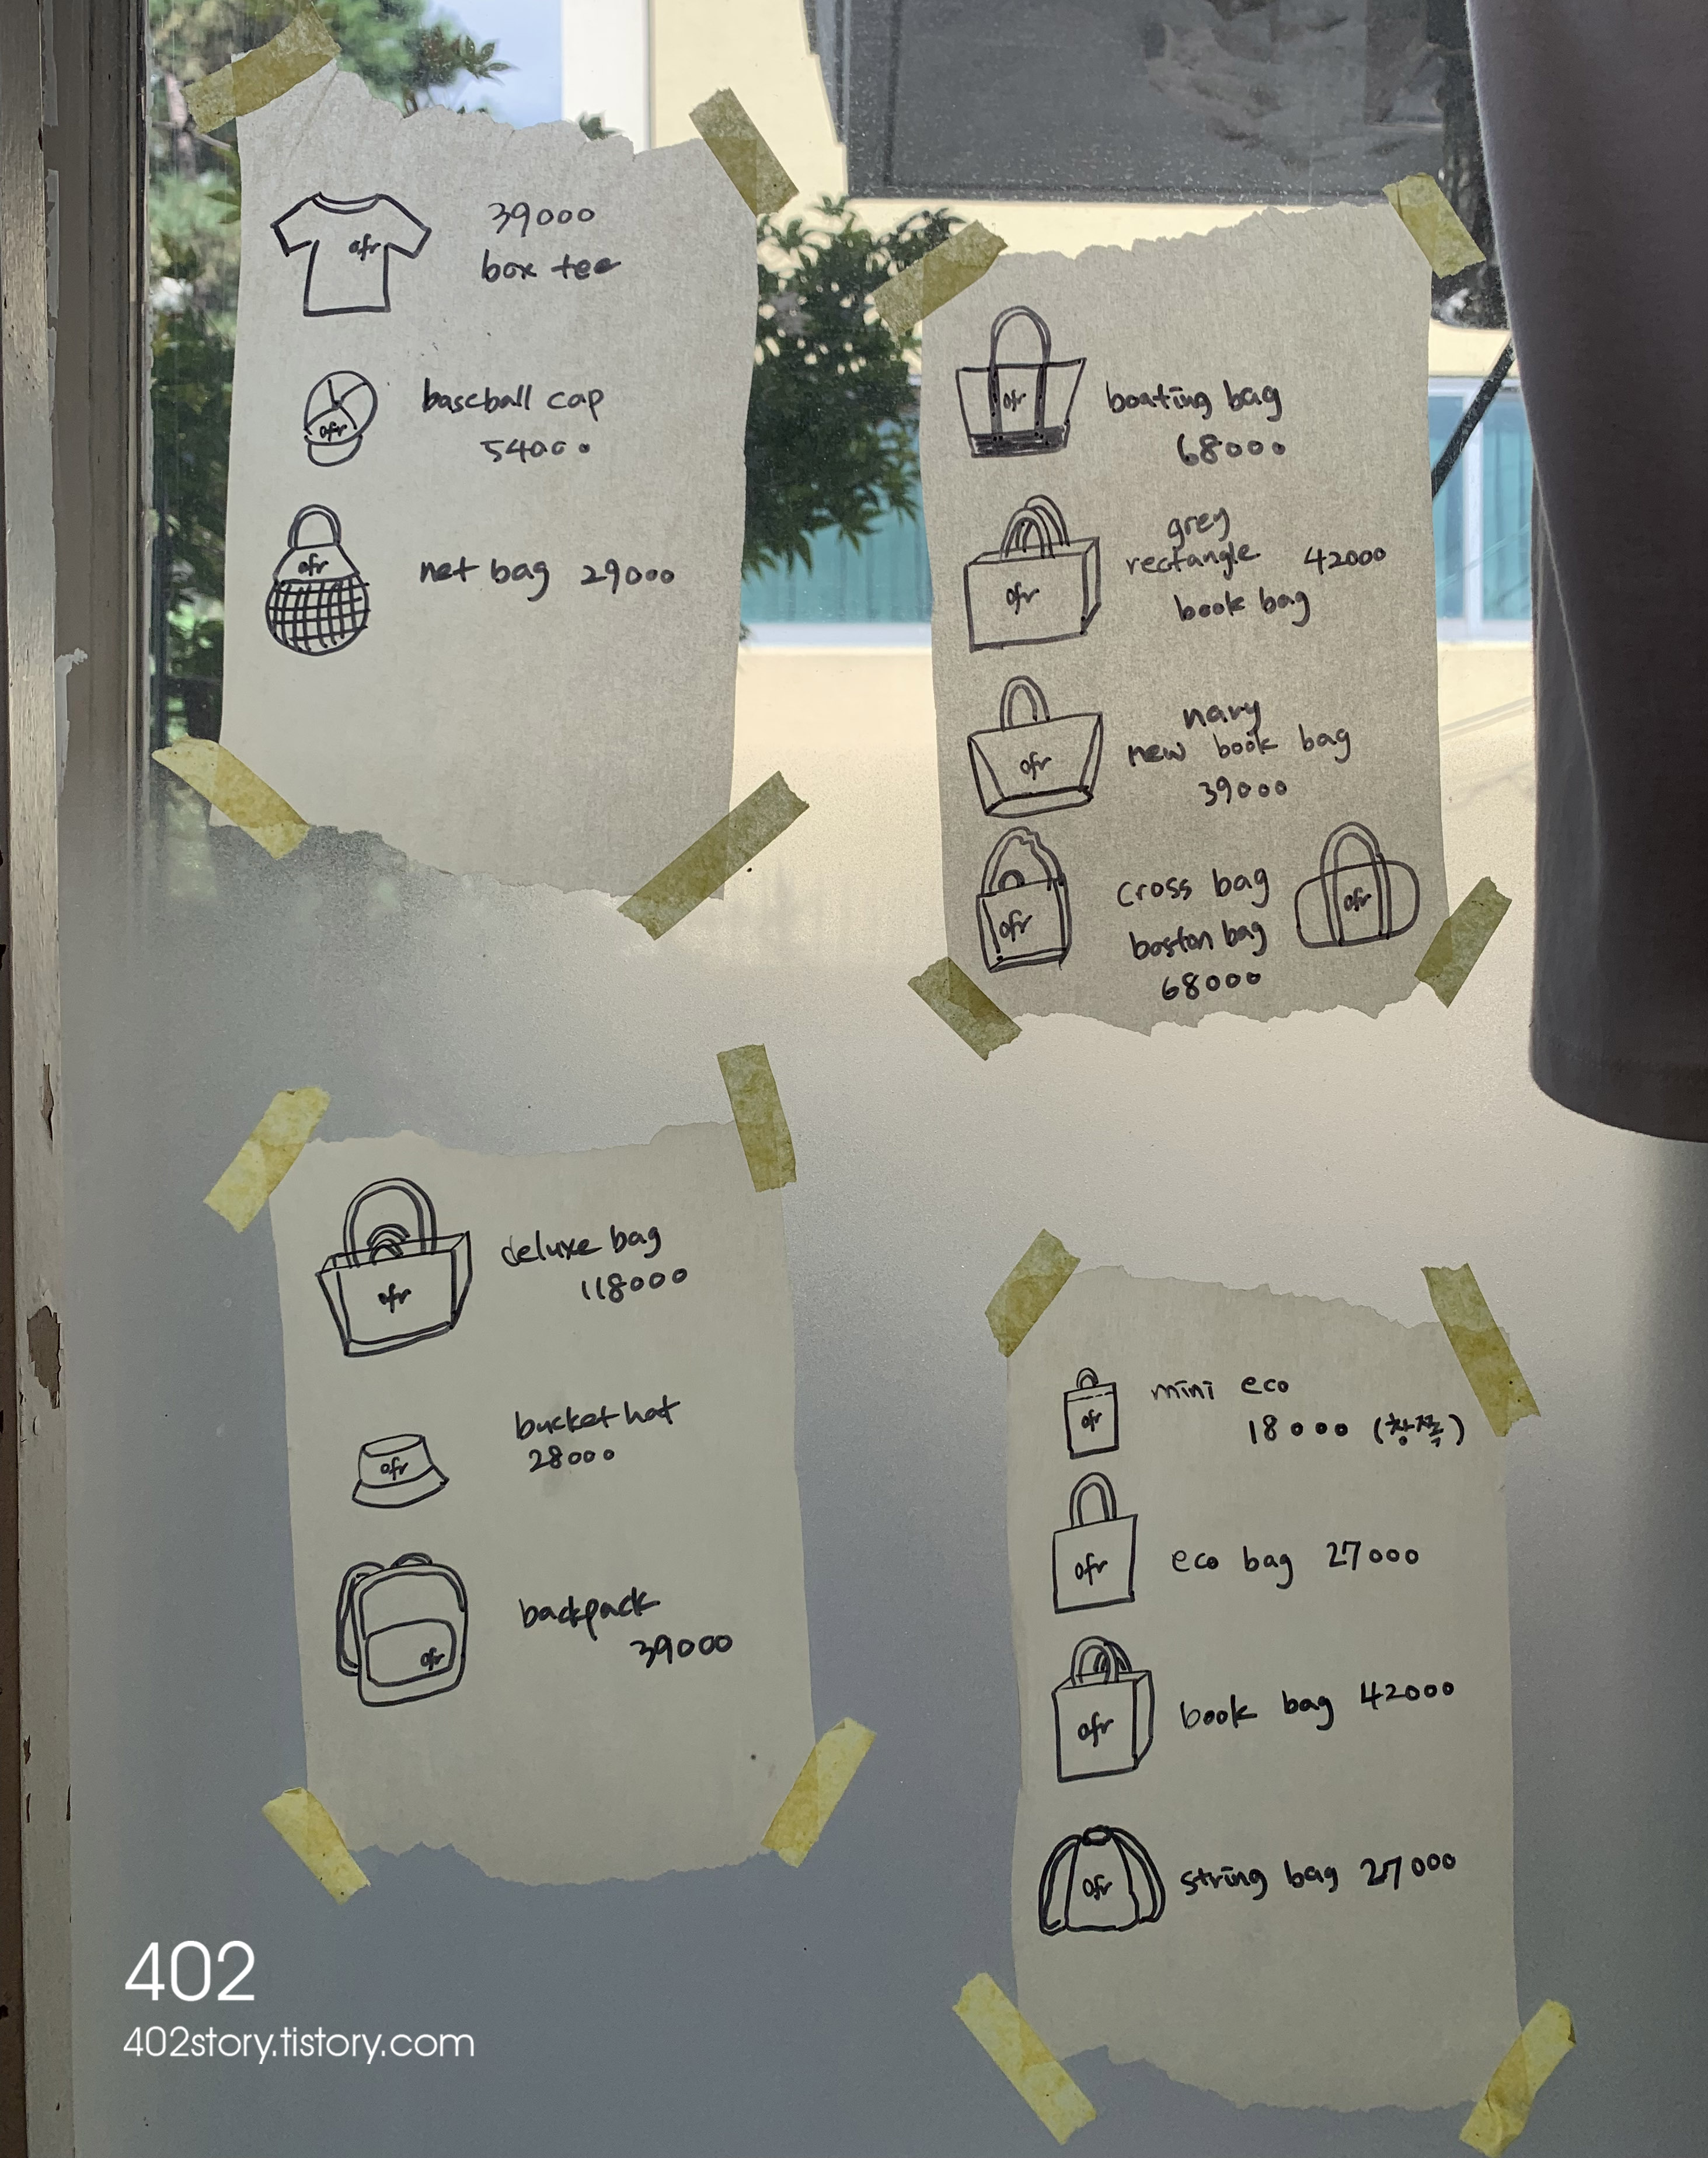 ofr
39000
box tee
ofr
baseball cap
54000
ofr
net bag 29000
ofr
boating bag
68000
ofr
grey
rectangle 42000
book bag
ofr
navy
new book bag
39000
ofr
cross bag
ofr
boston bag
68000
ofr
deluxe bag
118000
ofr
bucket hat
28000
ofr
backpack
39000
ofr
mini eco
18000 (창쪽)
ofr
eco bag 27000
ofr
book bag 42000
ofr
string bag 27000
402
402story.tistory.com